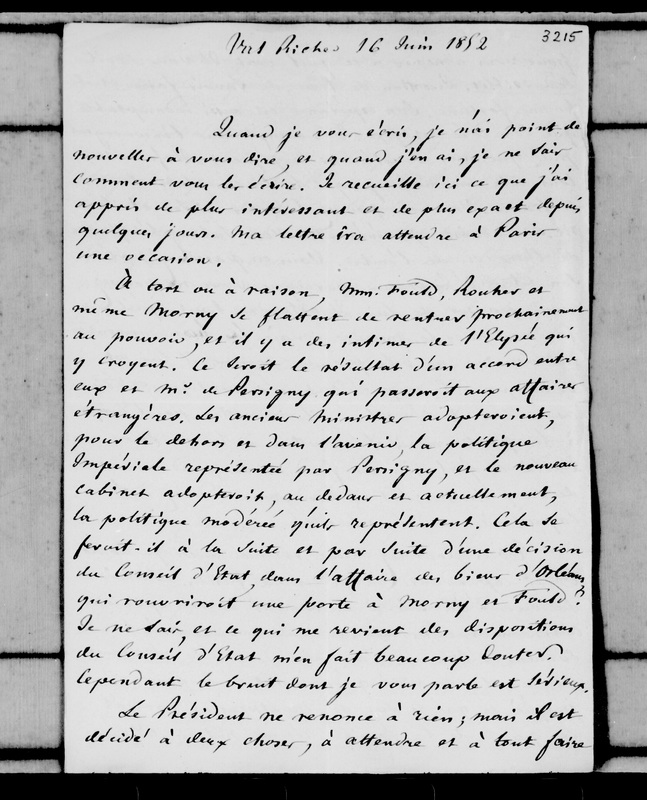 3215
Val Richer 16 Juin 1852
Quand je vous écris, je n'ai point de
nouvelles à vous dire, et quand j'en ai, je ne sais
comment vous les écrire. Je recueille ici ce que j'ai
appris de plus intéressant et de plus exact depuis
quelques jours. Ma lettre ira attendre à Paris
une occasion.
À tort ou à raison, Mm. Fould, Rouher et
même Morny se flattent de rentrer prochainement
au pouvoir, et il y a des intimes de l'Elysée qui
y croyent. Ce seroit le résultat d'un accord entre
eux et Mr. de Persigny qui passeroit aux affaires
étrangères. Les anciens Ministres adopteroient,
pour le dehors et dans l'avenir, la politique
Impériale représentée par Persigny, et le nouveau
cabinet adopteroit, au dedans et actuellement,
la politique modérée qu'ils représentent. Cela se
feroit-il à la suite et par suite d'une décision
du Conseil d'Etat, dans l'affaire des biens d'Orléans
qui rouvriroit une porte à Morny et Fould ?
Je ne sais, et ce qui me revient des dispositions
du Conseil d'Etat m'en fait beaucoup douter.
Cependant le bruit dont je vous parle est sérieux.
Le Président ne renonce à rien ; mais il est
décidé à deux choses, à attendre et à tout faire